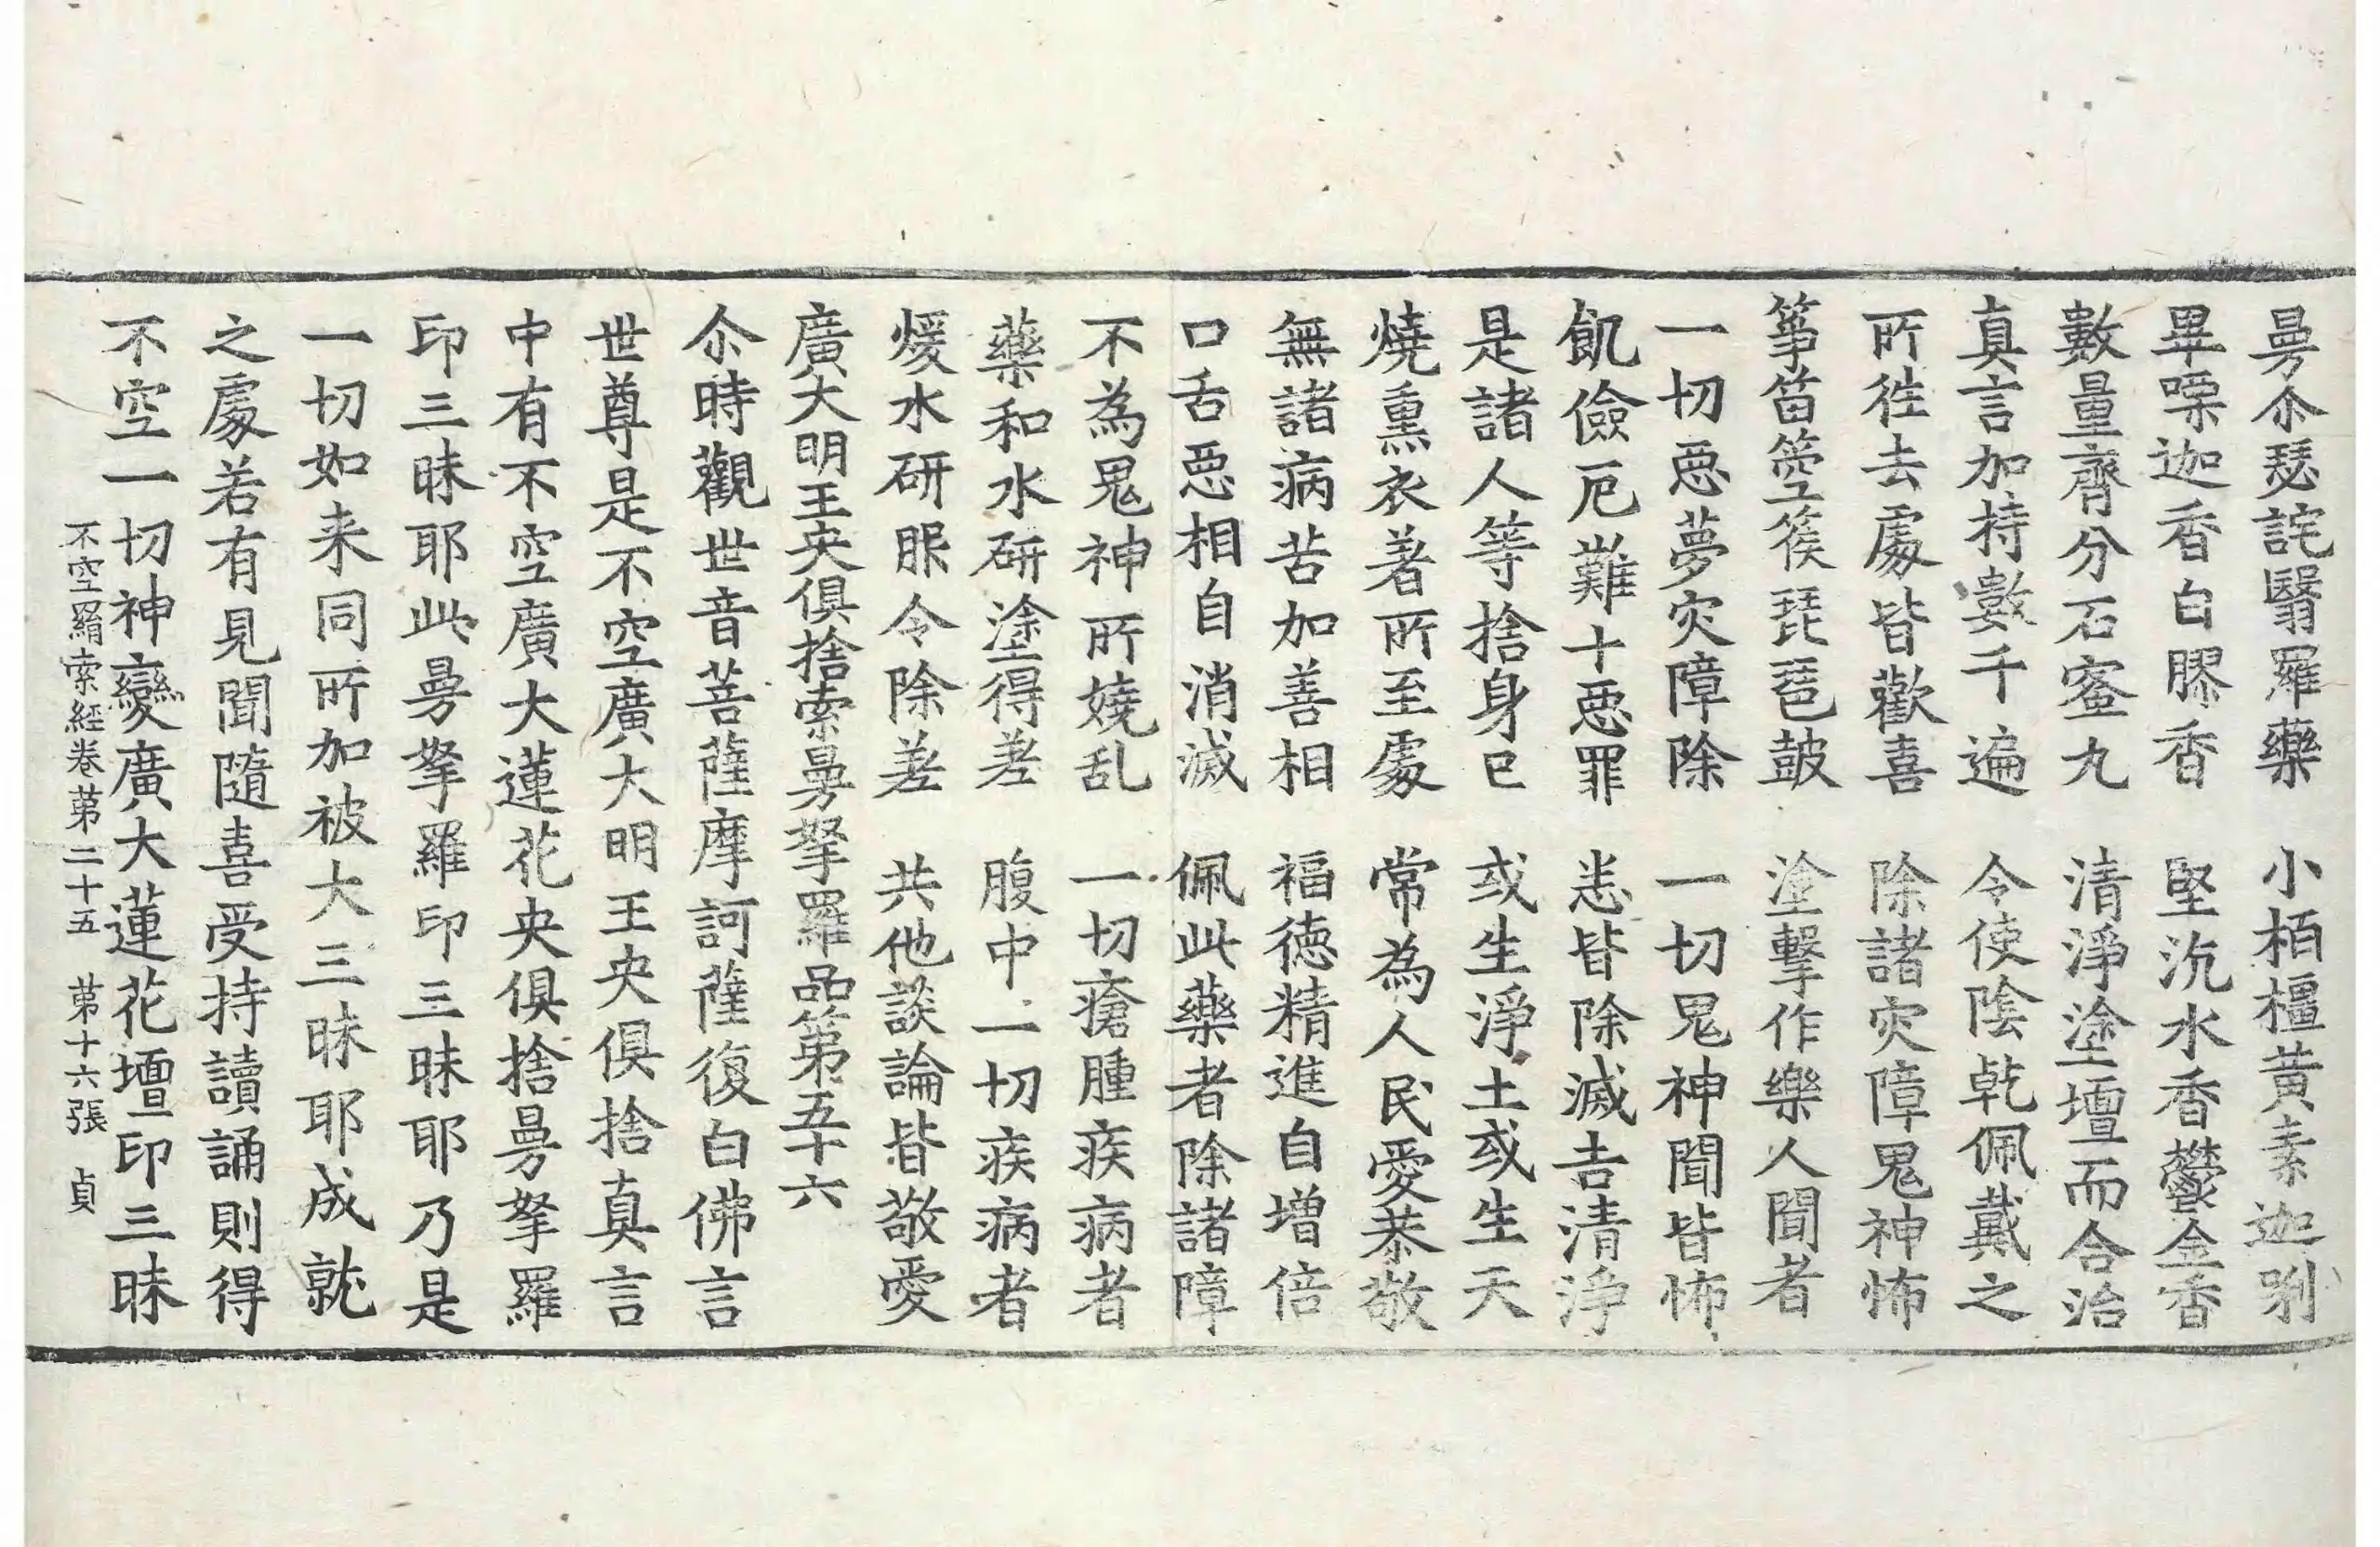 曼尒瑟詫翳羅藥　小栢橿黃素迦㘑
畢㗚迦香白膠香　堅沉水香鬱金香
數量齊分石蜜丸　清淨塗壇而合治
真言加持數千遍　令使陰乾佩戴之
所往去處皆歡喜　除諸灾障鬼神怖
箏笛箜篌琵琶鼓　塗擊作樂人聞者
一切惡夢灾障除　一切鬼神聞皆怖
飢儉厄難十惡罪　悉皆除滅吉清淨
是諸人等捨身已　或生淨土或生天
燒熏衣著所至處　常為人民愛恭敬
無諸病苦加善相　福德精進自增倍
口舌惡相自消滅　佩此藥者除諸障
不為鬼神所嬈乱　一切瘡腫疾病者
藥和水研塗得差　腹中一切疾病者
煖水研服令除差　共他談論皆敬愛
廣大明王央俱捨索曼拏羅品第五十六
尒時觀世音菩薩摩訶薩復白佛言
世尊是不空廣大明王央俱捨真言
中有不空廣大蓮花央俱捨曼拏羅
印三昧耶此曼拏羅印三昧耶乃是
一切如来同所加被大三昧耶成就
之處若有見聞隨喜受持讀誦則得
不空一切神變廣大蓮花壇印三昧
不空羂索經卷第二十五　第十六張　貞